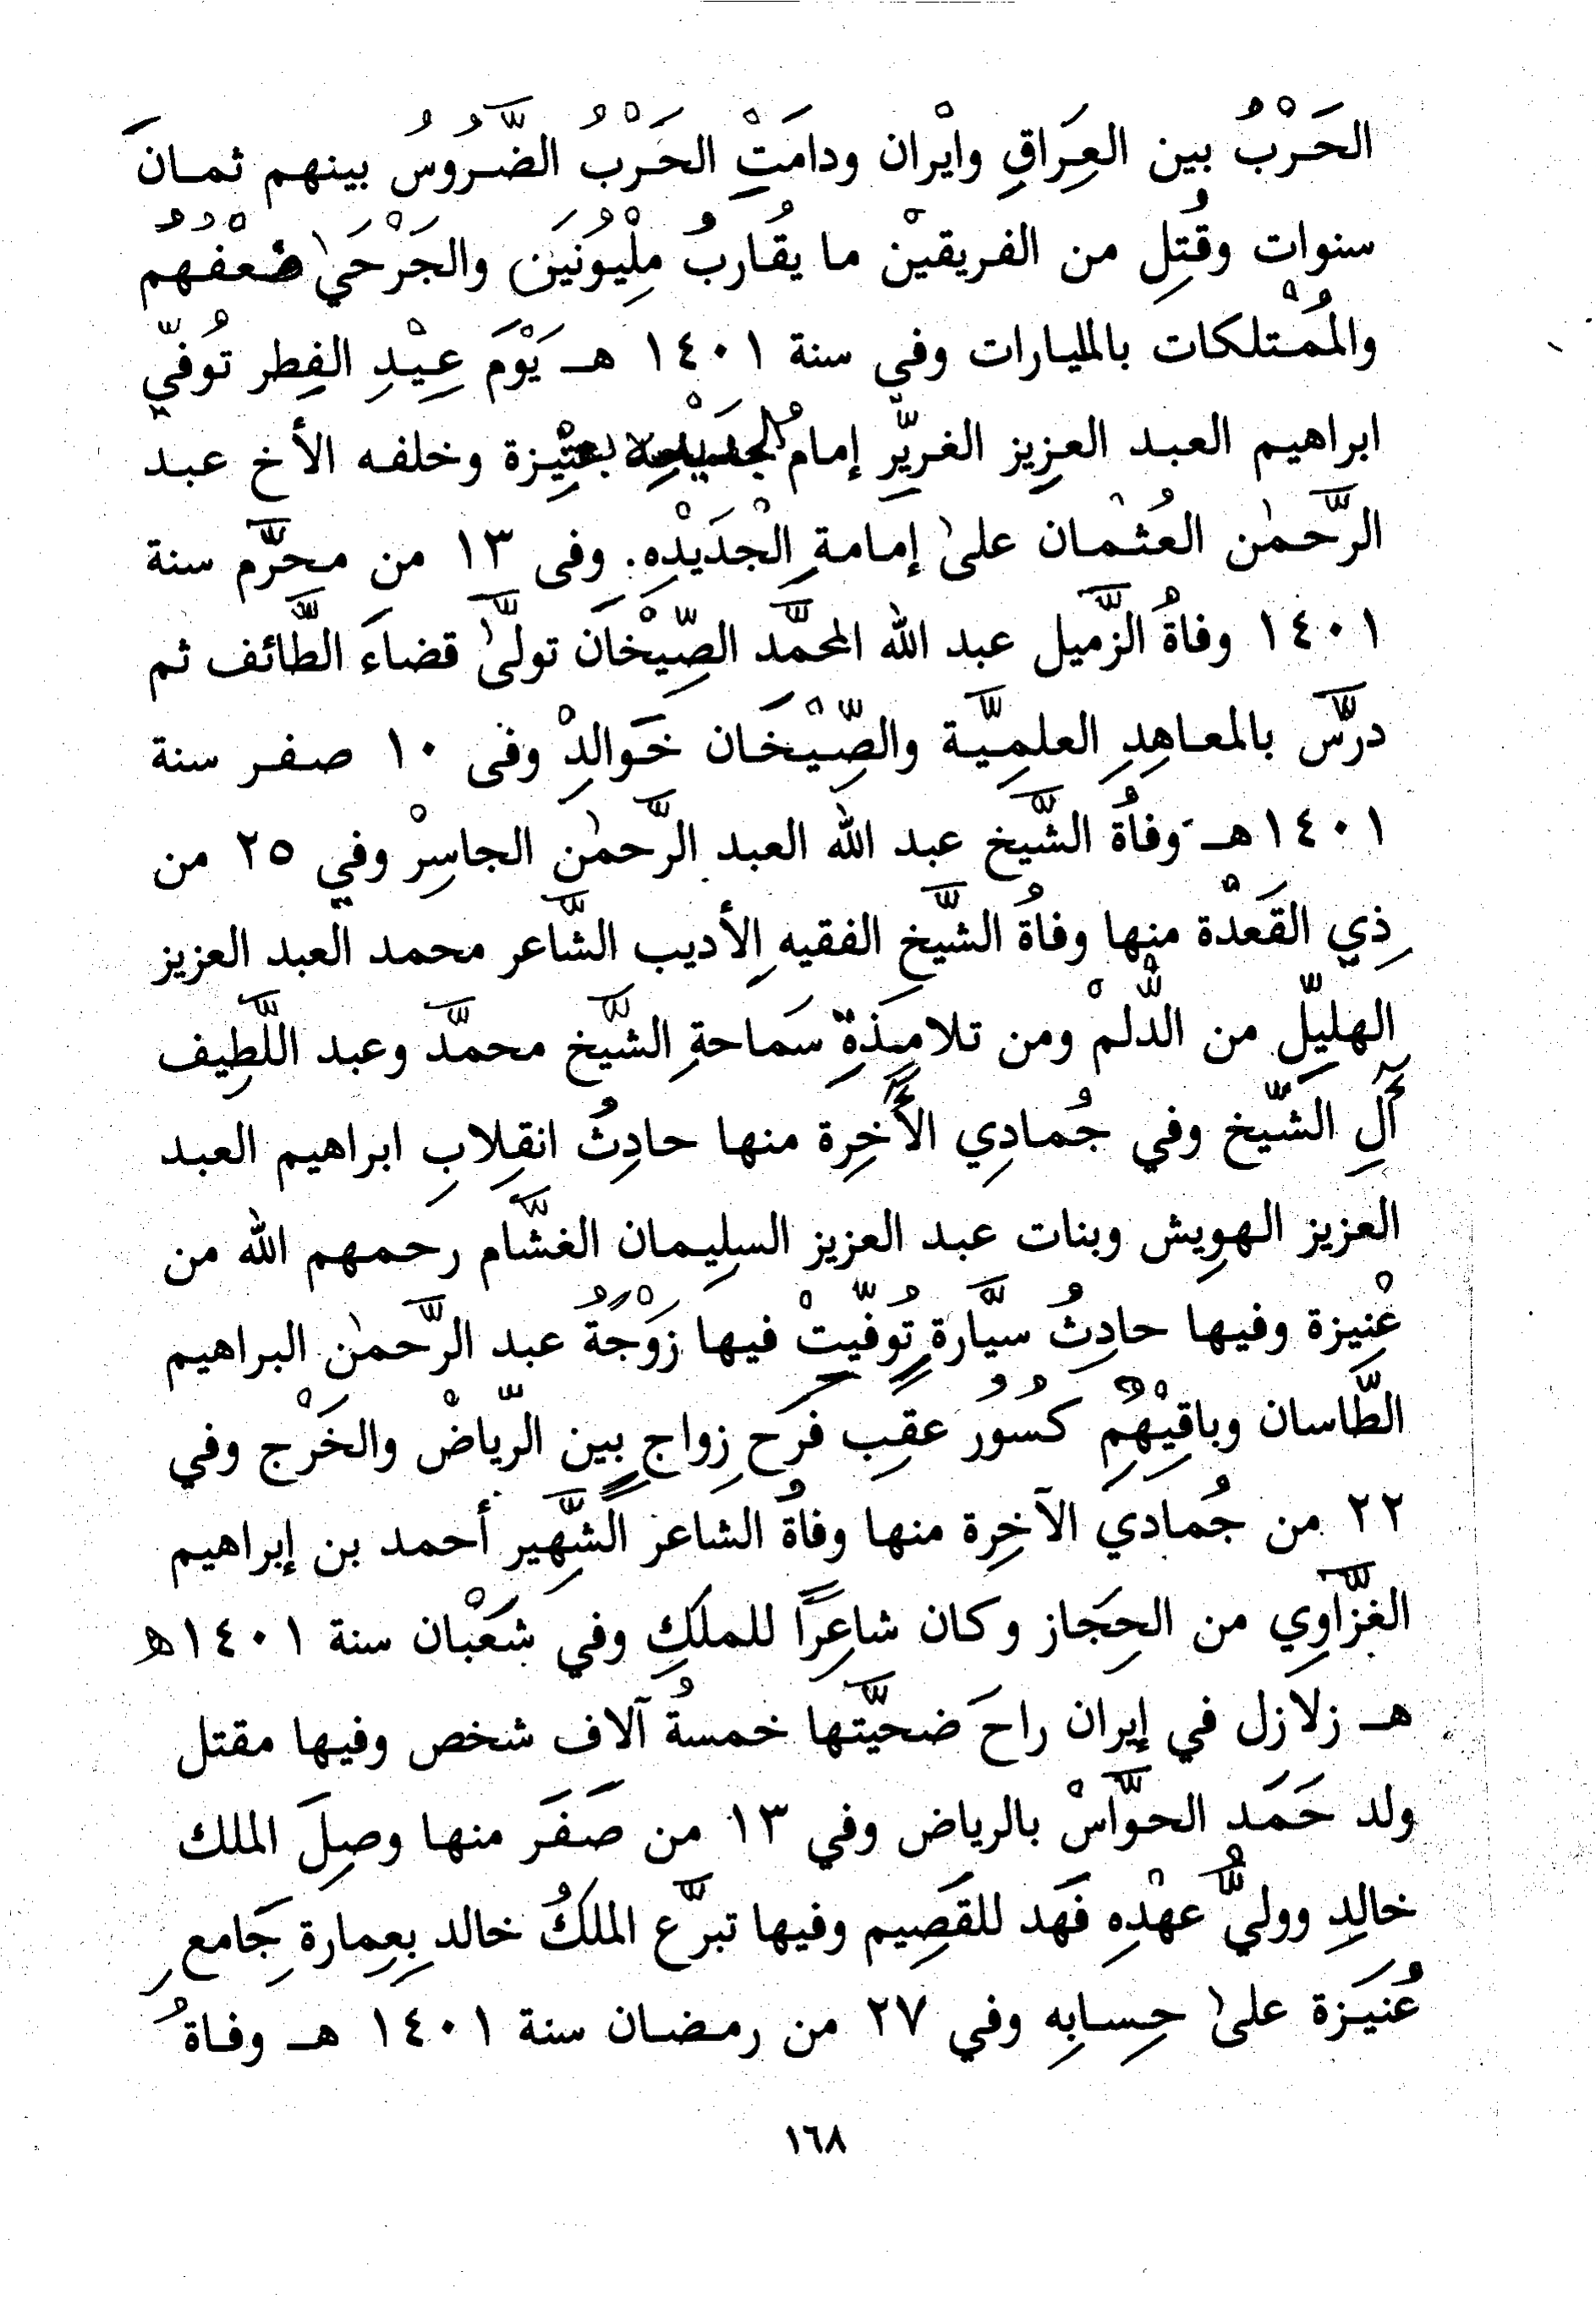 الحَرْبُ بين العِرَاقِ وايْران ودامَتْ الحَرْب الضَّرُوسُ بينهم ثمانَ
سنوات وقُتِل من الفريقيْن ما يقُاربُ مِلْيُونَين والجَرْحَىٰ ضْعْفُهُم
والمُمْتلكات بالمليارات وفي سنة ١٤٠١ هـ يَوْمَ عِيْدِ الفِطر تُوفّي
ابراهيم العبد العزِيز الغريِّر إمام بعنَيْزة وخلفه الأخ عبد
الرَّحمٰن العُثمان علىٰ إمامةِ الْجَدَيْدِه. وفى ١٣ من محرَّم سنة
١٤٠١ وفاةُ الزَّميل عبد الله المحمَّد الصِّيْخَان تولَّىٰ قضاءَ الطَّائف ثم
درَّس بالمعاهِدِ العلمِيَّة والصِّيْخَان خَوالِدْ وفى ١٠ صفر سنة
١٤٠١هـ وفاةُ الشَّيخ عبد الله العبد الرَّحمٰن الجاسِرْ وفي ٢٥ من
ذِي القَعْدْة منها وفاةُ الشَّيخ الفقيه الأديب الشَّاعر محمد العبد العزيز
الهليِّل من الدُّلمْ ومن تلامِيذَةِ سَماحةِ الشَّيخ محمَّد وعبد اللَّطِيف
آلِ الشّيخ وفي جُمادِي الأَخِرة منها حادِثُ انقِلابِ ابراهيم العبد
العزيز الهوِيش وبنات عبد العزيز السلِيمان الغشَّام رحمهم الله من
عْنِيزة وفيها حادِثُ سيَّارةٍ تُوفّيتْ فيها زَوْجَةُ عبد الرَّحمٰن البراهيم
الطَّاسان وباقِيْهُم كسُورُ عقِب فَرَح زِواجٍ بين الرّياضْ والخَرْج وفي
٢٢ من جُمادي الآخِرة منها وفاةُ الشاعر الشَّهِير أحمد بن إبراهيم
الغزَّاوِي من الحِجَاز وكان شاعِرًا للملَكِ وفي شَعْبان سنة ١٤٠١هـ
هـ زلازل في إيران راحَ ضحيَّتها خمسةُ آلاف شخص وفيها مقتل
ولد حَمَد الحوَّاسْ بالرياض وفي ١٣ من صَفَر منها وصِلَ الملك
خالِدِ ووليُّ عهْدِه فَهَد للقَصِيم وفيها تبرَّع الملكُ خالد بِعِمارة جَامع
عُنيَزة علىٰ حِسابِه وفي ٢٧ من رمضان سنة ١٤٠١ هـ وفاةُ
١٦٨